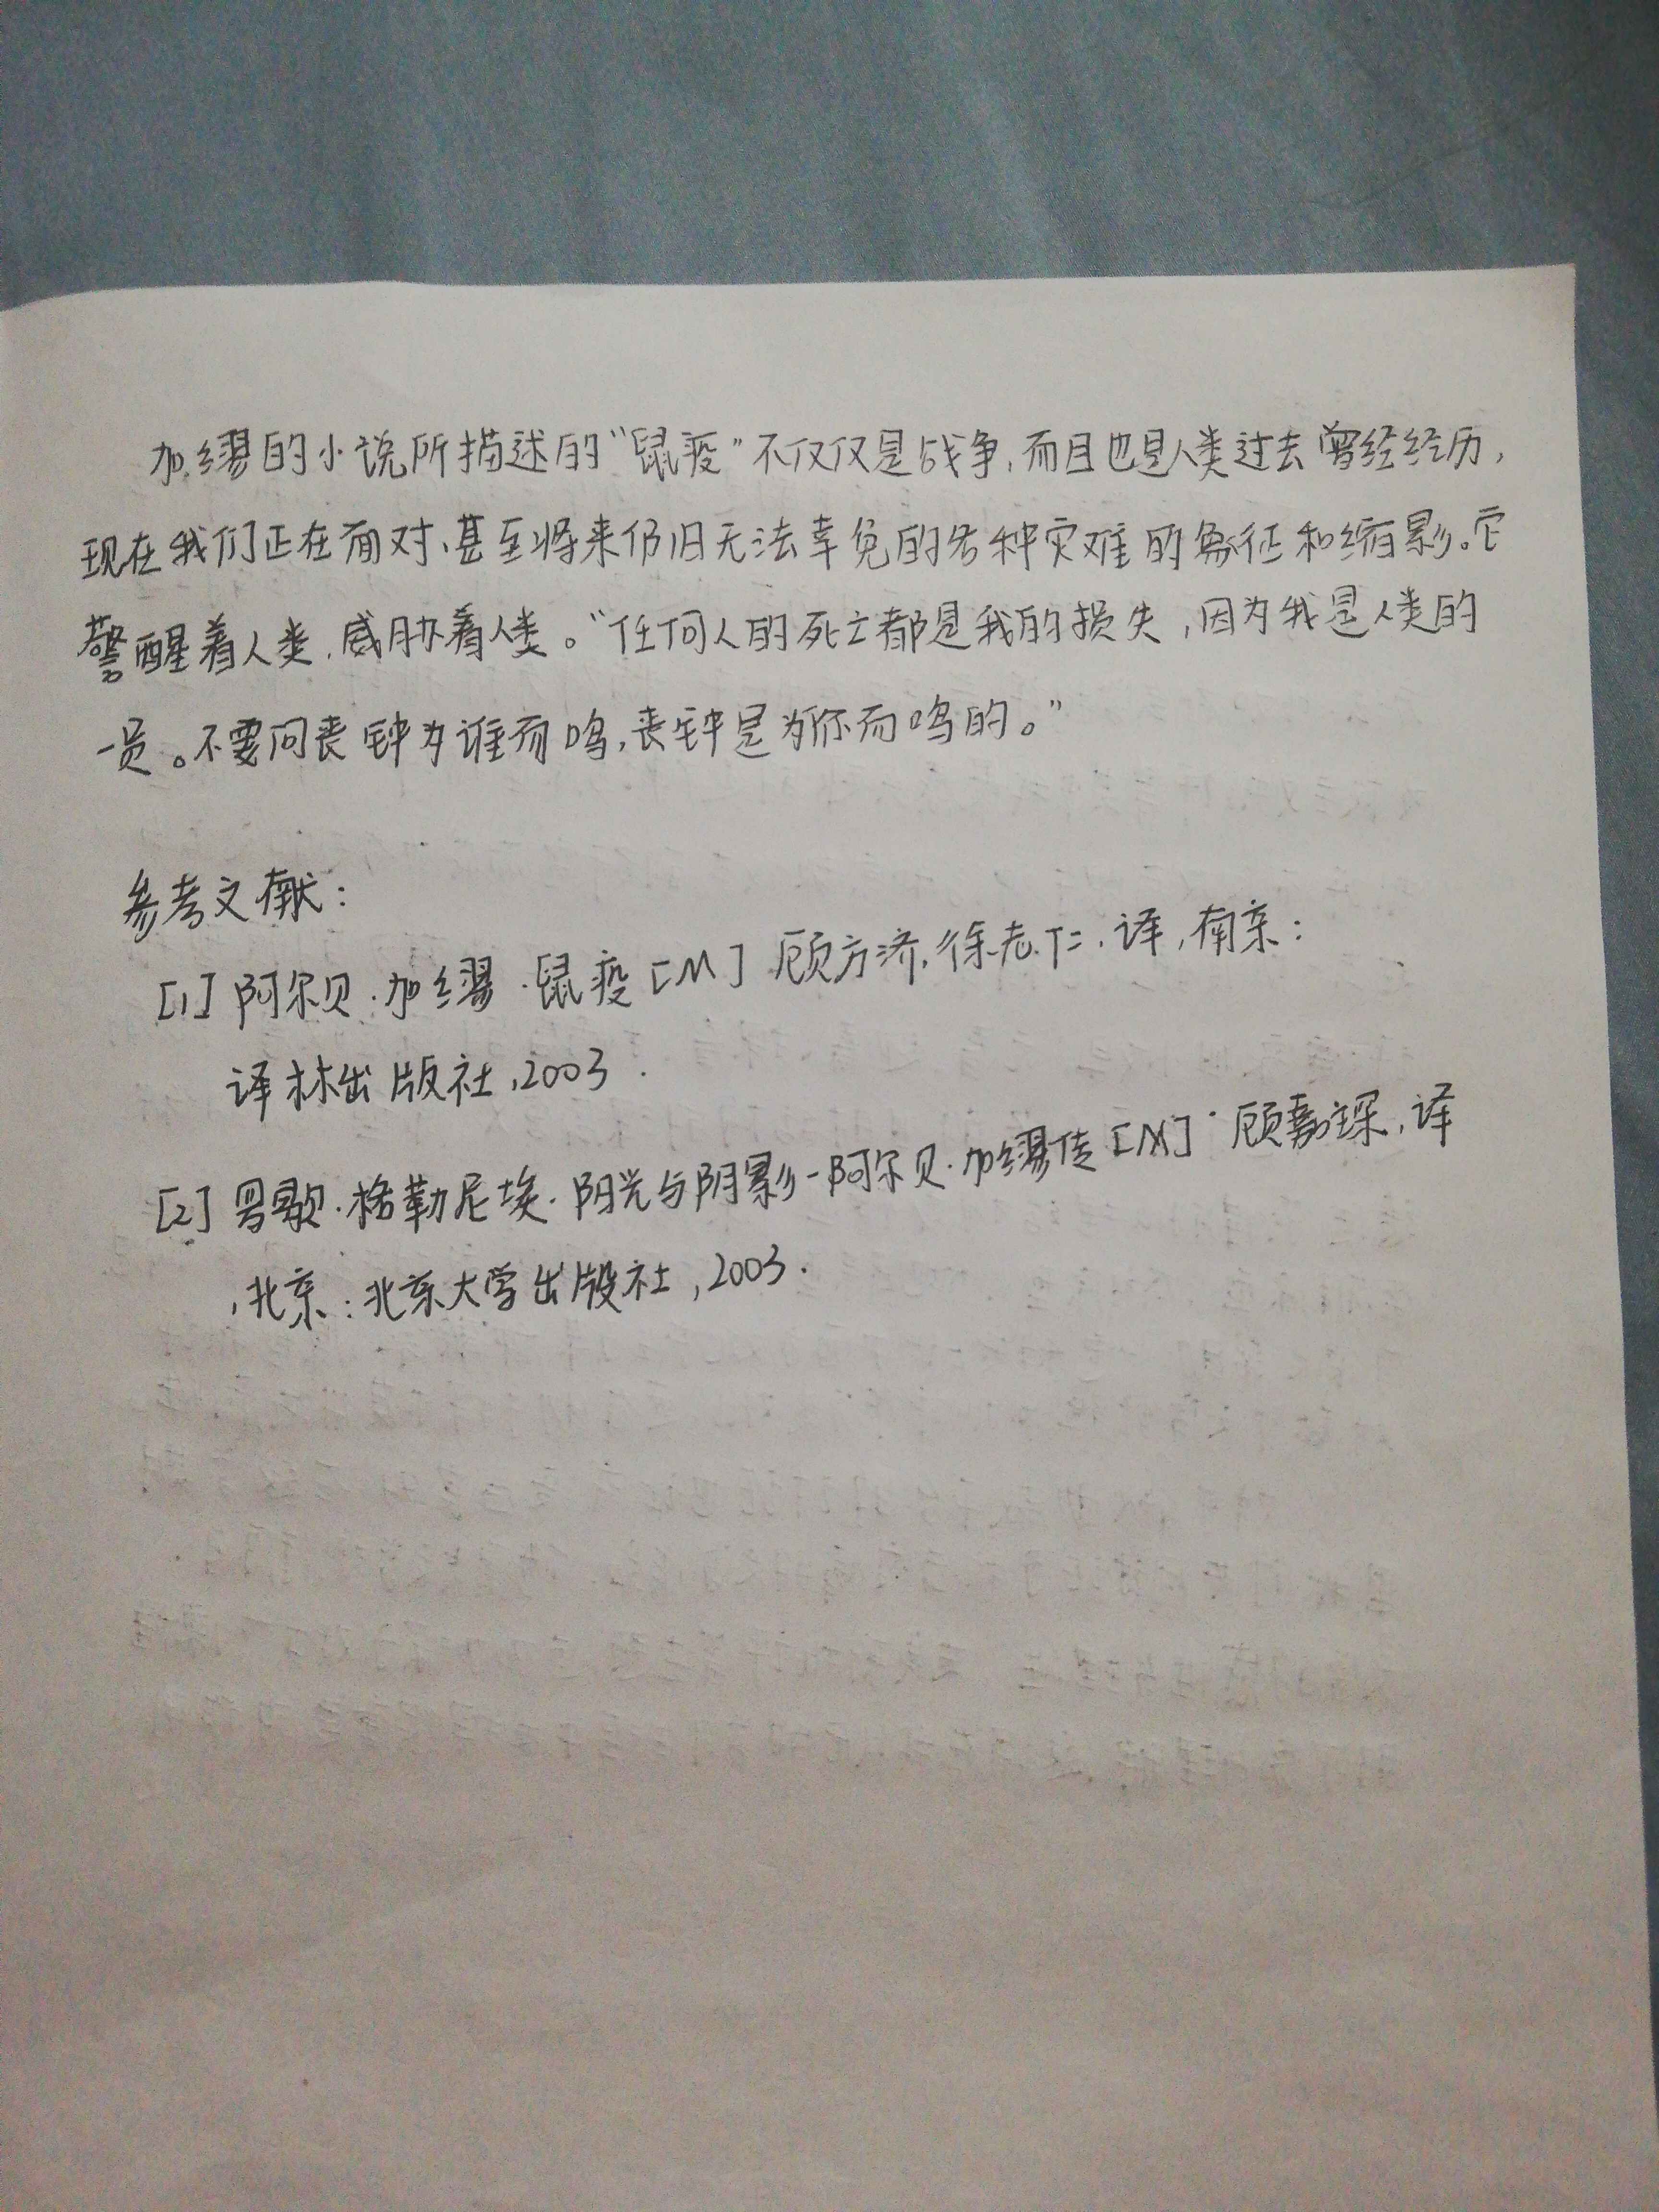 加缪的小说所描述的“鼠疫”不仅仅是战争,而且也是人类过去曾经经历,
现在我们正在面对、甚至将来仍旧无法幸免的各种灾难的象征和缩影。它
警醒着人类,威胁着人类。“任何人的死亡都是我的损失,因为我是人类的
一员。不要问丧钟为谁而鸣,丧钟是为你而鸣的。”
参考文献:
[1] 阿尔贝·加缪·鼠疫[M] 顾方济,徐志仁,译,南京:
译林出版社,2003.
[2] 罗歇·格勒尼埃·阳光与阴影-阿尔贝·加缪传[M]·顾嘉琛,译
,北京:北京大学出版社,2003.